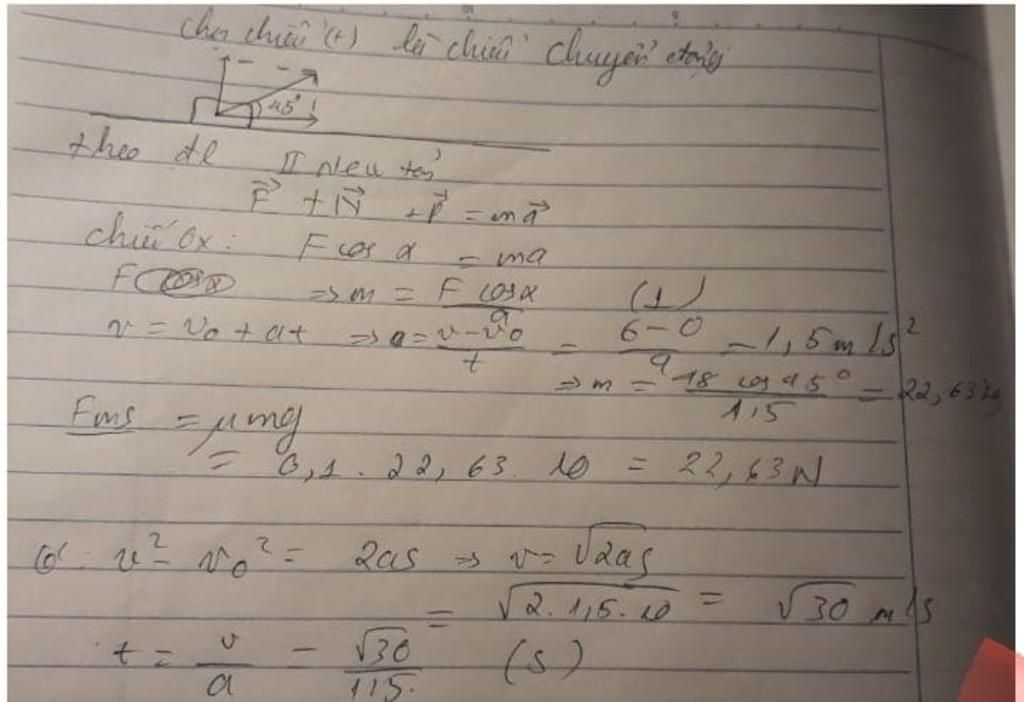 chọn chiều (+) là chiều chuyển động
45°
theo đl II Neu tơn
F⃗ + N⃗ + P⃗ = ma⃗
chiếu Ox: F cos α = ma
F ⇒ m = F cos α / a (1)
v = v₀ + at ⇒ a = v - v₀ / t = 6 - 0 / 4 = 1,5 m/s²
⇒ m = 48 cos 45° / 1,5 = 22,63 kg
Fms = μmg
= 0,1 . 22,63 . 10 = 22,63 N
v² - v₀² = 2as ⇒ v = √2as
= √2. 1,5. 10 = √30 m/s
t = v / a = √30 / 1,5 (s)